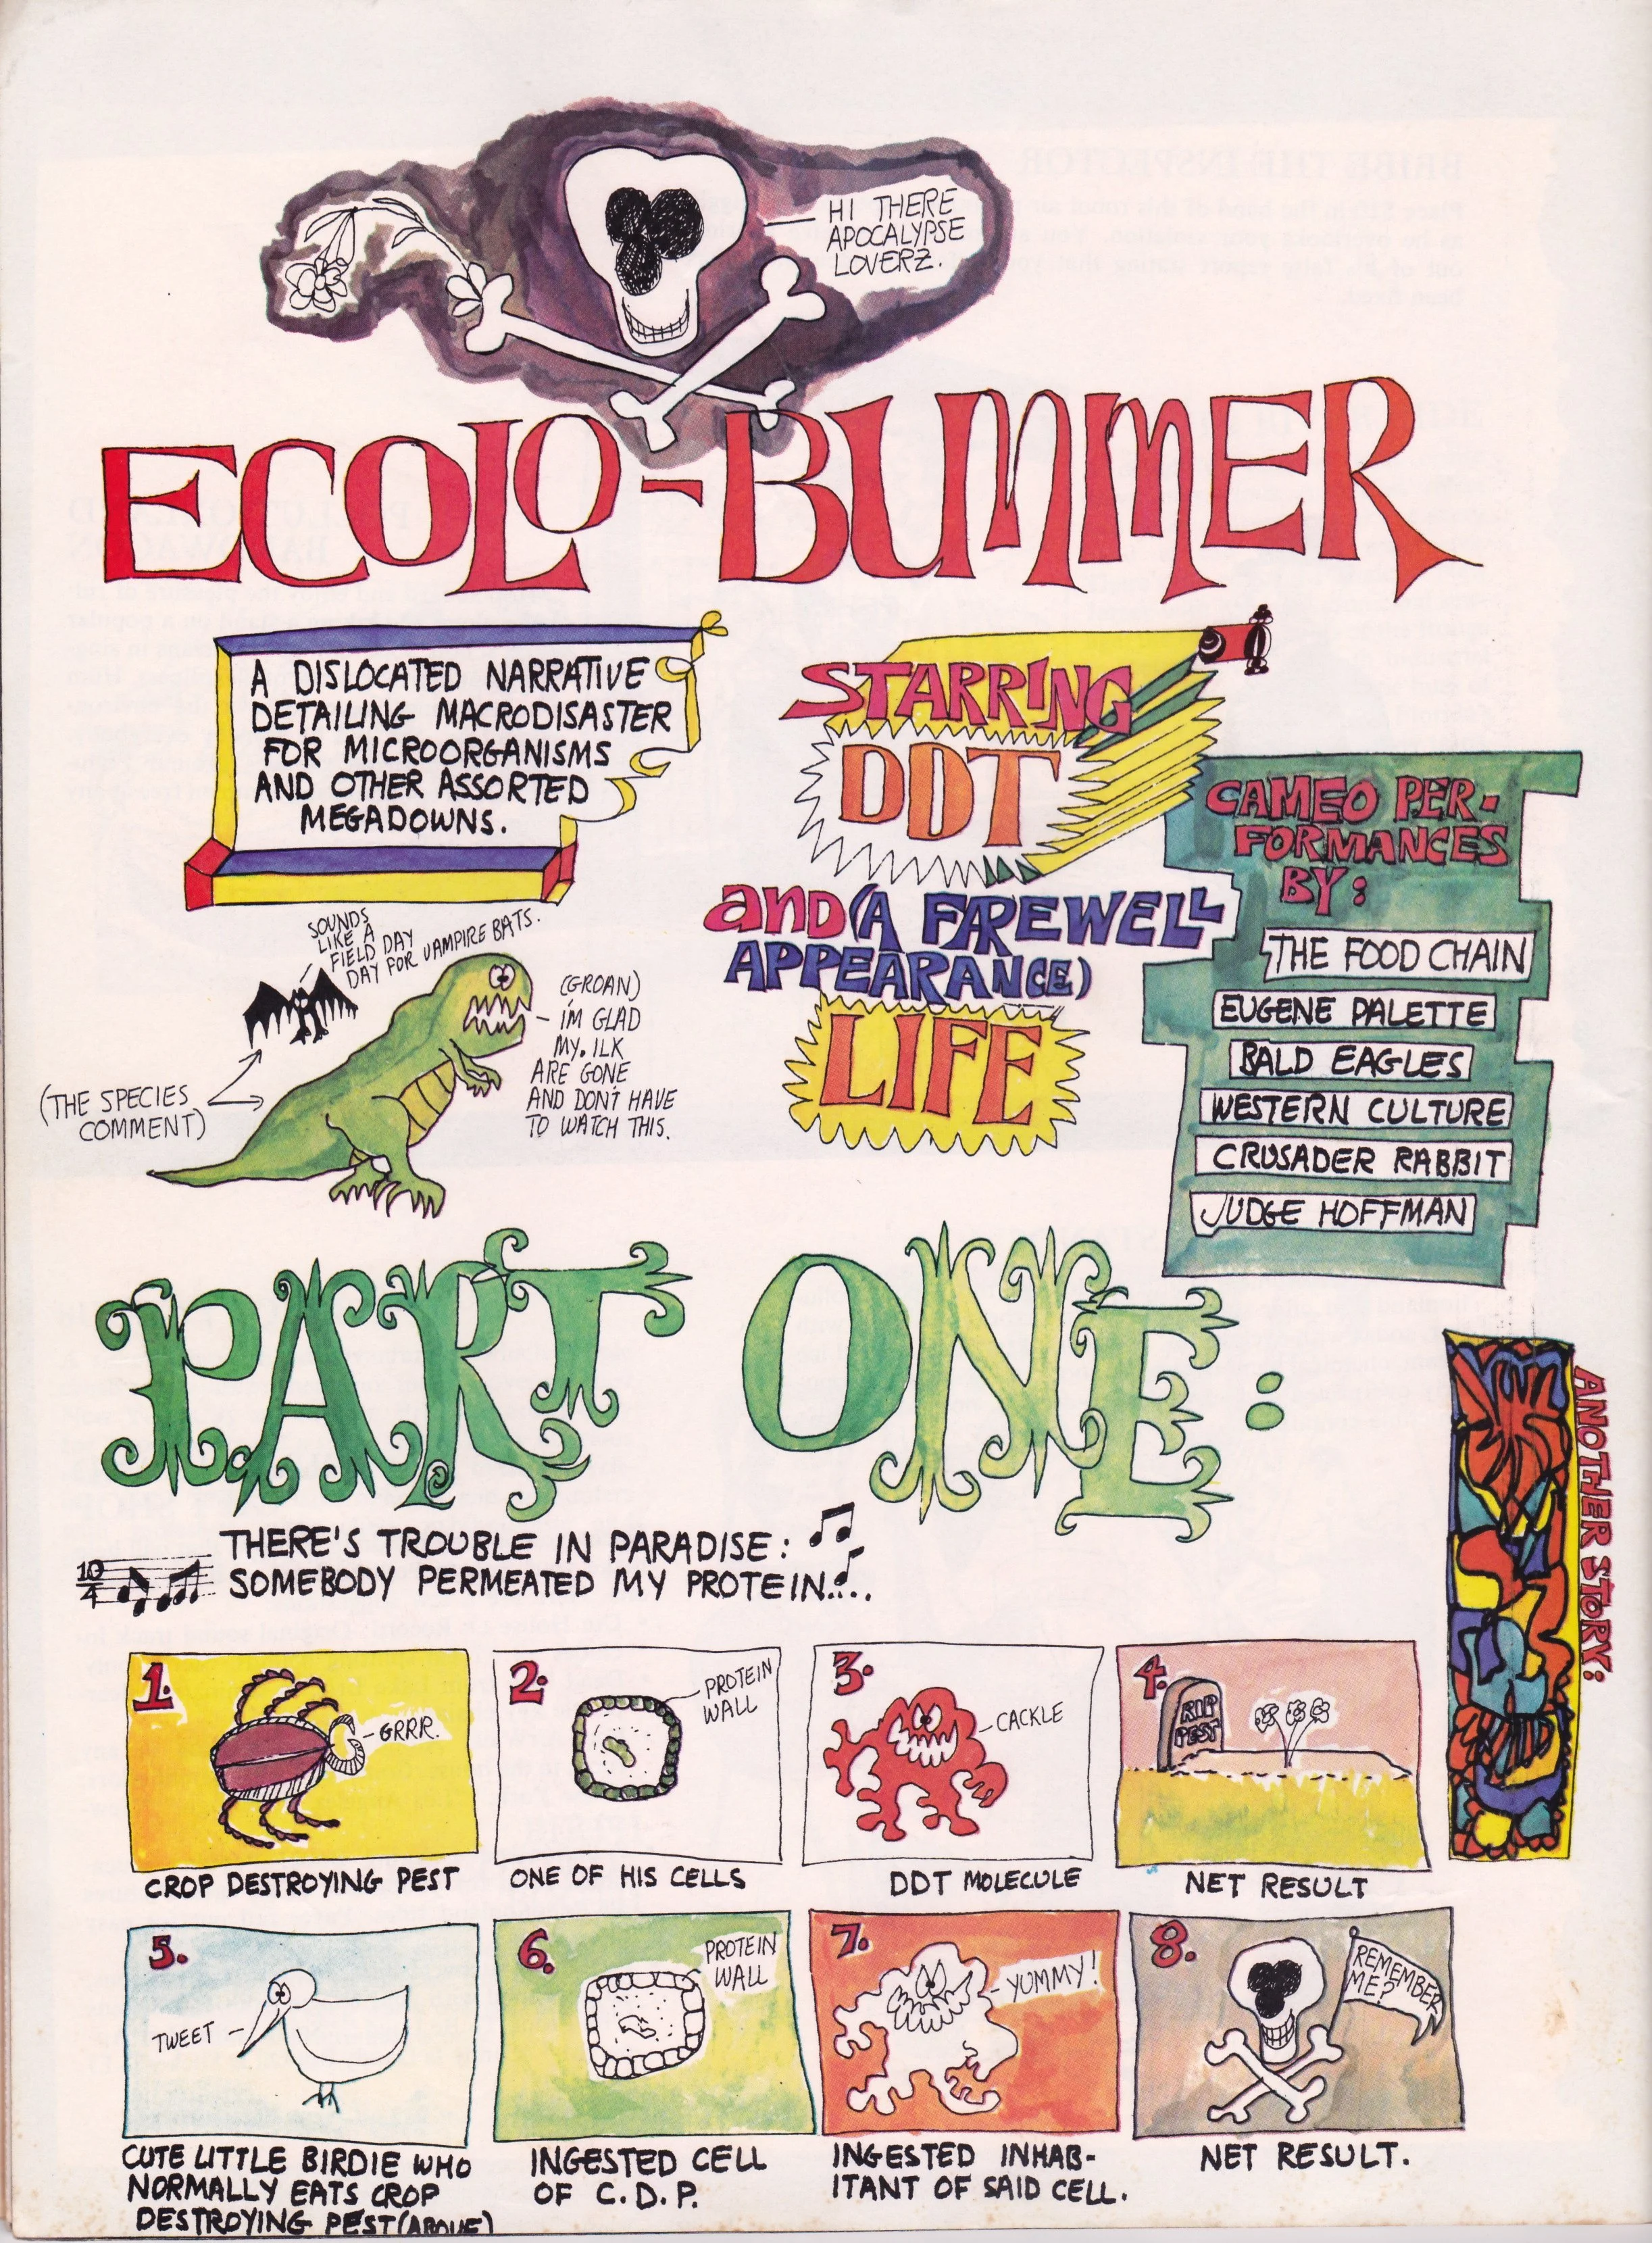 HI THERE
APOCALYPSE
LOVERZ.
ECOLO-BUMMER
A DISLOCATED NARRATIVE
DETAILING MACRODISASTER
FOR MICROORGANISMS
AND OTHER ASSORTED
MEGADOWNS.
STARRING
DDT
and (A FAREWELL
APPEARANCE)
LIFE
CAMEO PER-
FORMANCES
BY:
THE FOOD CHAIN
EUGENE PALETTE
BALD EAGLES
WESTERN CULTURE
CRUSADER RABBIT
JUDGE HOFFMAN
SOUNDS
LIKE A
FIELD DAY
DAY FOR VAMPIRE BATS.
(GROAN)
I'M GLAD
MY. ILK
ARE GONE
AND DON'T HAVE
TO WATCH THIS.
(THE SPECIES
COMMENT)
PART ONE:
ANOTHER STORY:
THERE'S TROUBLE IN PARADISE:
10
4
SOMEBODY PERMEATED MY PROTEIN....
1.
GRRR.
CROP DESTROYING PEST
2.
PROTEIN
WALL
ONE OF HIS CELLS
3.
CACKLE
DDT MOLECULE
4.
RIP
PEST
NET RESULT
5.
TWEET
CUTE LITTLE BIRDIE WHO
NORMALLY EATS CROP
DESTROYING PEST (ABOVE)
6.
PROTEIN
WALL
INGESTED CELL
OF C.D.P.
7.
YUMMY!
INGESTED INHAB-
ITANT OF SAID CELL.
8.
REMEMBER
ME?
NET RESULT.